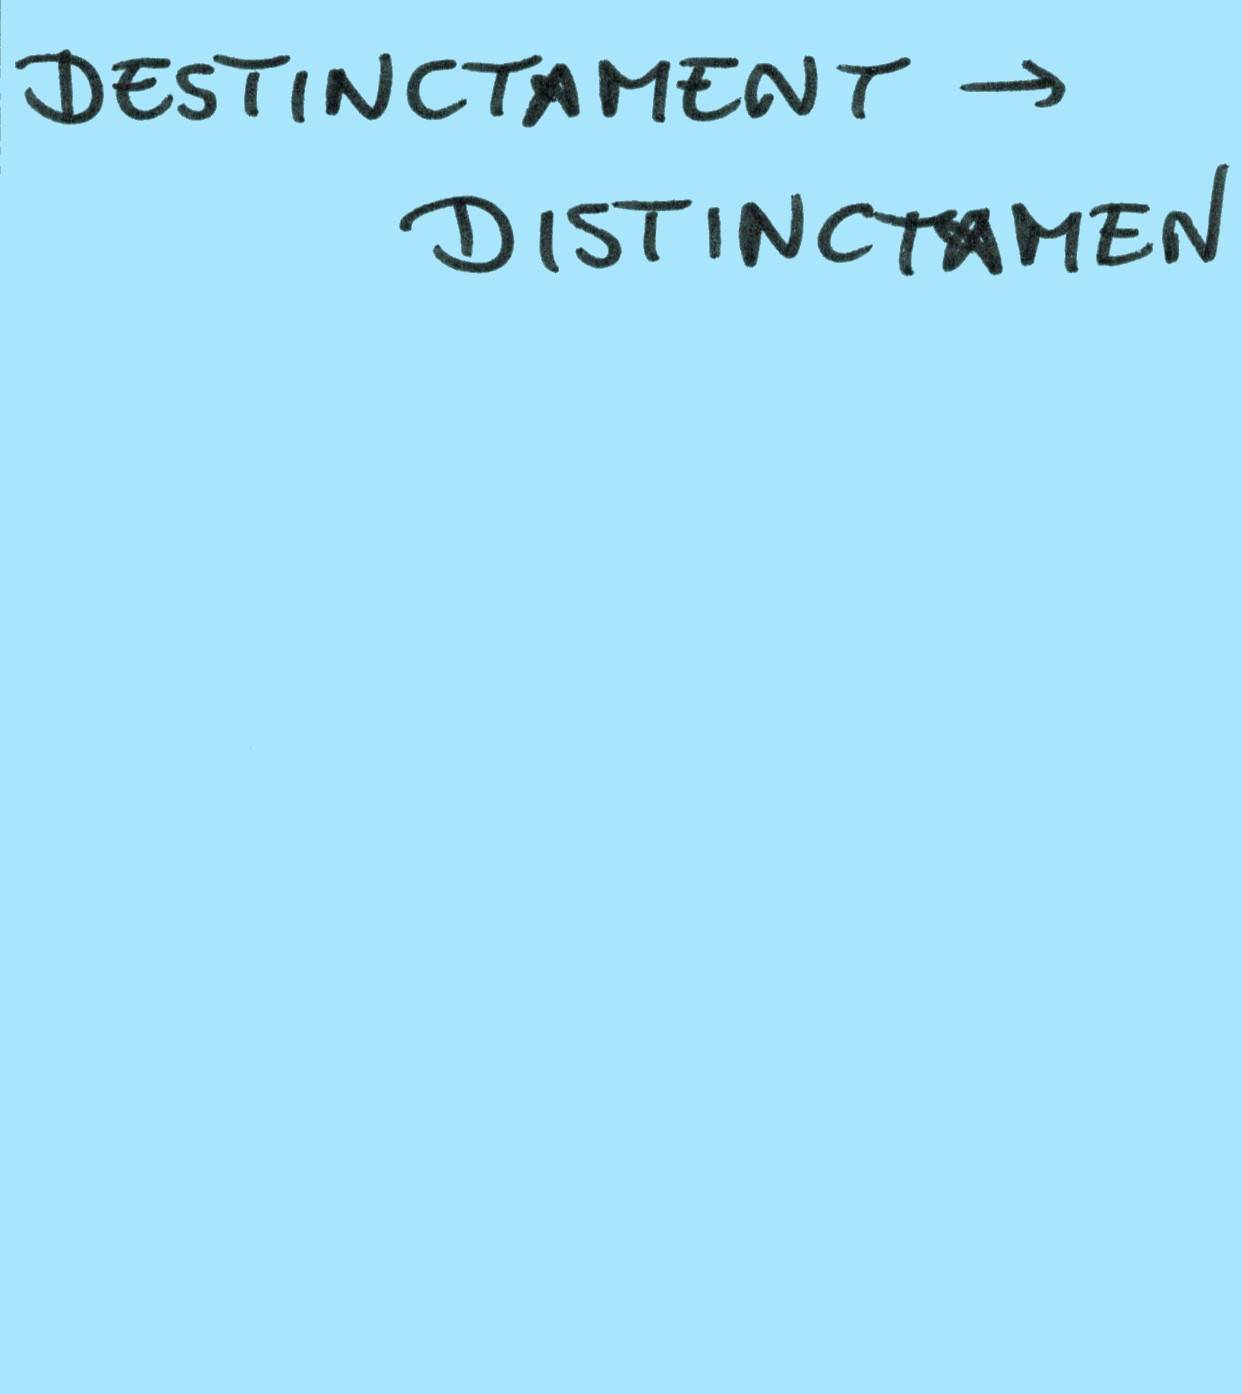 DESTINCTAMENT →
DISTINCTAMEN